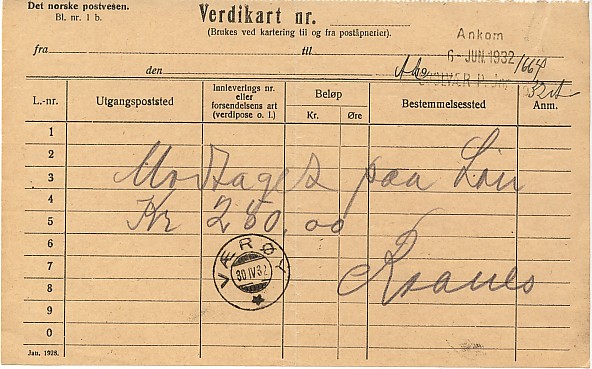 Det norske postvesen.
Bl. nr. 1 b.
Verdikart nr.
(Brukes ved kartering til og fra poståpnerier).
Ankom
6 - JUN. 1932
/664
fra
til
den
L.-nr.
Utgangspoststed
Innleverings nr.
eller
forsendelsens art
(verdipose o. l.)
Beløp
Kr.
Øre
Bestemmelsessted
Anm.
1
2
3
Mottaget paa Lån
4
5
Kr 280,00
6
VÆRØY
30 IV 32
7
8
9
0
Jan. 1928.